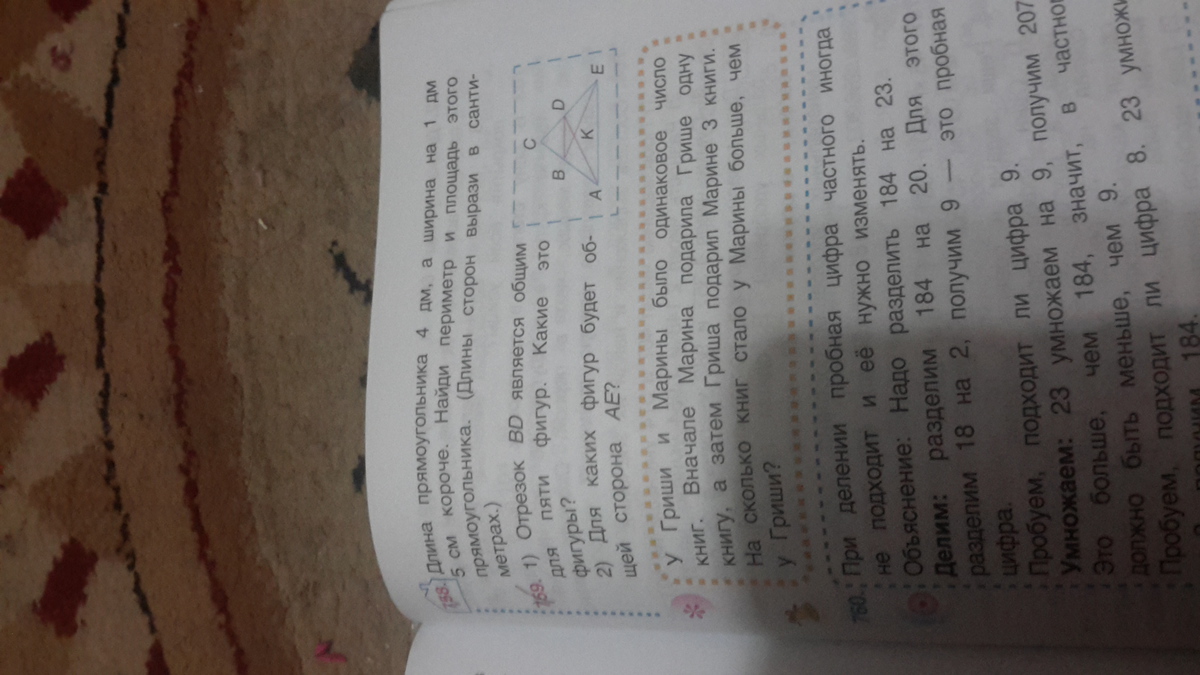 158. Длина прямоугольника 4 дм, а ширина на 1 дм
5 см короче. Найди периметр и площадь этого
прямоугольника. (Длины сторон вырази в санти-
метрах.)
159. 1) Отрезок BD является общим
для пяти фигур. Какие это
фигуры?
2) Для каких фигур будет об-
щей сторона AE?
C
B
D
K
A
E
У Гриши и Марины было одинаковое число
книг. Вначале Марина подарила Грише одну
книгу, а затем Гриша подарил Марине 3 книги.
На сколько книг стало у Марины больше, чем
у Гриши?
160. При делении пробная цифра частного иногда
не подходит и её нужно изменять.
Объяснение: Надо разделить 184 на 23.
Делим: разделим 184 на 20. Для этого
разделим 18 на 2, получим 9 — это пробная
цифра.
Пробуем, подходит ли цифра 9.
Умножаем: 23 умножаем на 9, получим 207
Это больше, чем 184, значит, в частно
должно быть меньше, чем 9.
Пробуем, подходит ли цифра 8. 23 умнож
184.